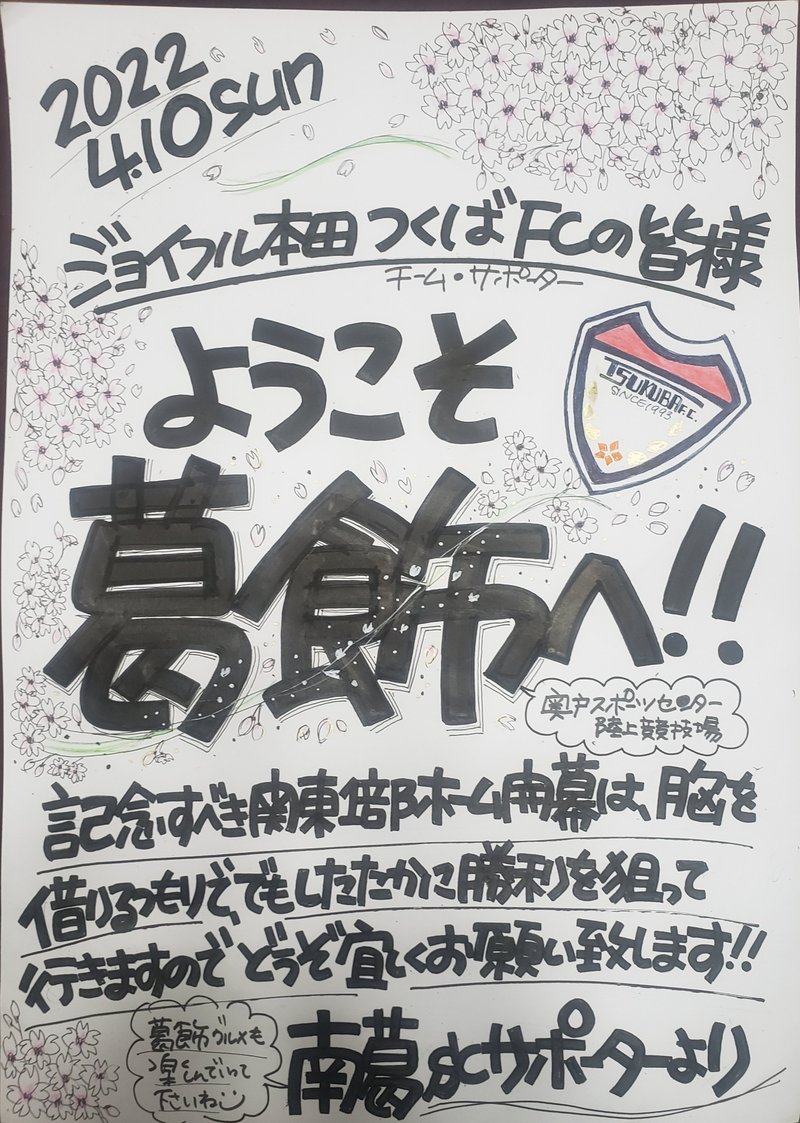 2022
4.10 sun
ジョイフル本田つくばFCの皆様
チーム・サポーター
ようこそ
TSUKUBA F.C.
SINCE 1993
葛飾へ!!
奥戸スポーツセンター
陸上競技場
記念すべき関東1部ホーム開幕は、胸を
借りるつもりで、でもしたたかに勝利を狙って
行きますのでどうぞ宜しくお願い致します!!
葛飾グルメも
楽しんでいって
下さいね
南葛SCサポーターより